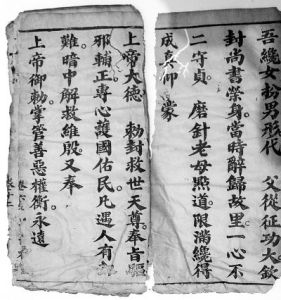 吾纔女扮男形代　父從征功大欽
封尚書榮身。當時辭歸故里。一心不
二守貞。磨針老母點道限滿纔得
成真仰蒙
上帝大德　勅封救世天尊。奉旨驅
邪輔正。專心護國佑民。凡遇人有
難暗中解救維殷又奉
上帝御勅。掌管善惡權衡永遠